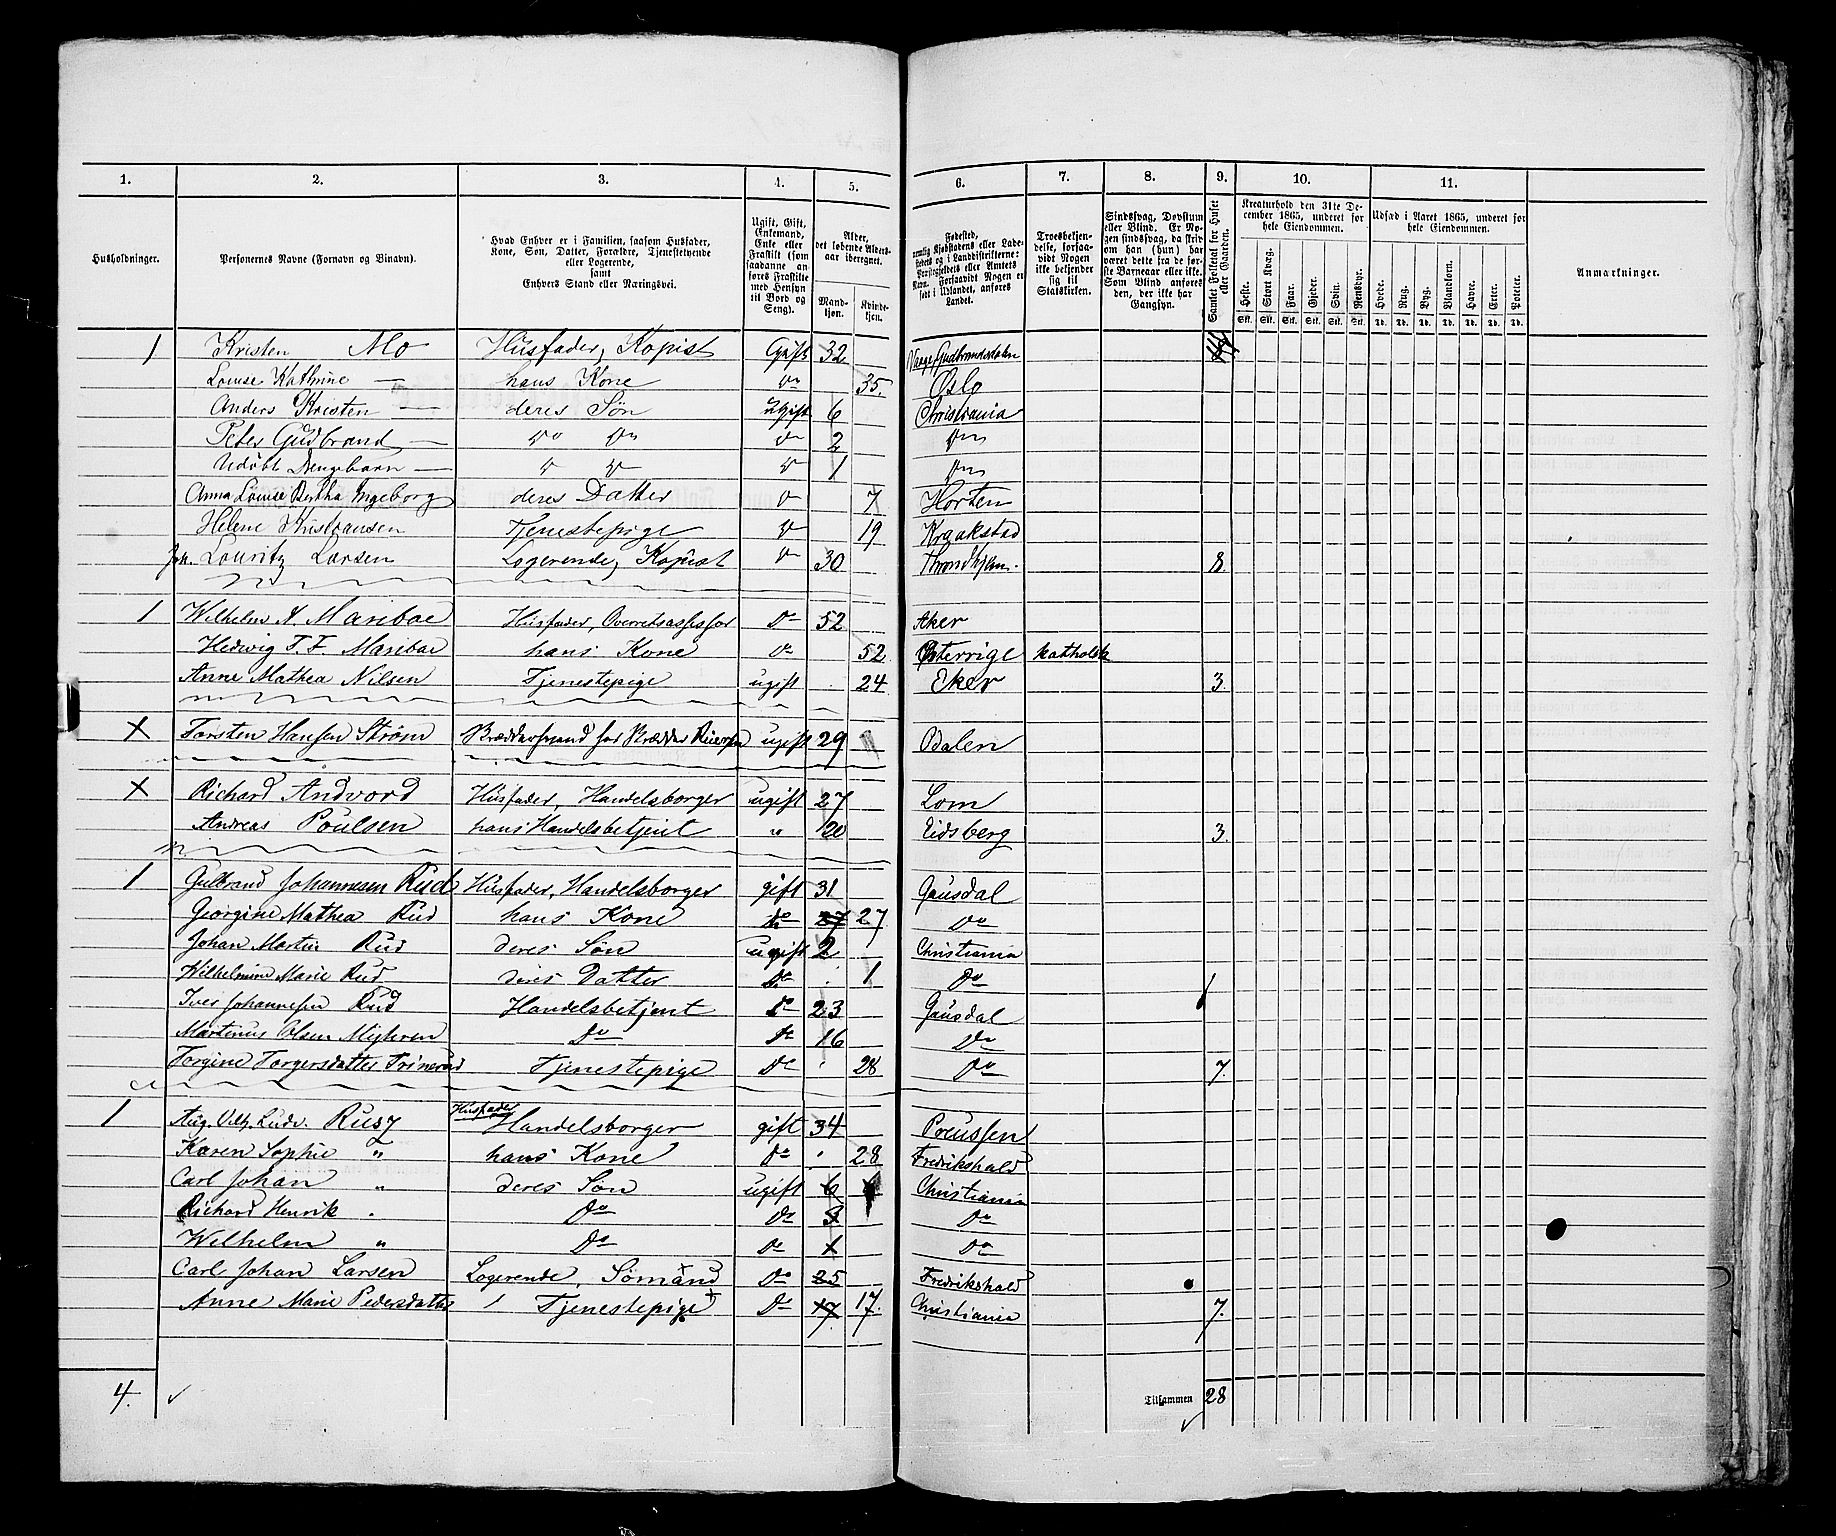 1. 2. 3. 4. 5. 6. 7. 8. 9. 10. 11.
Husholdninger.
Personernes Navne (Fornavn og Binavn).
Hvad Enhver er i Familien, saasom Husfader,
Kone, Søn, Datter, Forældre, Tjenestetyende
eller Logerende,
samt
Enhvers Stand eller Næringsvei.
Ugift, Gift,
Enkemand,
Enke eller
Fraskilt (som
saadanne an-
føres Fraskilte
med Hensyn
til Bord og
Seng).
Alder,
det løbende Alders-
aar iberegnet.
Mand-
kjøn.
Kvinde-
kjøn.
Fødested,
nemlig Kjøbstadens eller Lade-
stedets og i Landdistrikterne:
Præstegjeldets eller Amtets
Navn. Forsaavidt Nogen er
født i Udlandet, anføres
Landet.
Troesbekjen-
delse, forsaa-
vidt Nogen
ikke bekjender
sig til
Statskirken.
Sindssvag, Døvstum
eller Blind. Er No-
gen sindssvag, da skriv
om han (hun) har
været dette fra de før-
ste Barneaar eller ikke.
Som Blind anføres
den, der ikke har
Gangsyn.
Samlet Folketal for Huset
eller Gaarden.
Kreaturhold den 31te De-
cember 1865, underet for
hele Eiendommen.
Heste. Stort Kvæg. Faar. Gjeder. Svin. Rensdyr.
Stk. Stk. Stk. Stk. Stk. Stk.
Udsæd i Aaret 1865, underet for
hele Eiendommen.
Hvede. Rug. Byg. Blandkorn. Havre. Erter. Poteter.
Td. Td. Td. Td. Td. Td. Td.
Anmærkninger.
1 Kristen Mo Husfader, Kopist Gift 32 Vaage Gudbrandsdalen
Louise Kathrine — hans Kone do 35. Oslo
Anders Kristen — deres Søn ugift 6 Christiania
Peter Gudbrand — do do do 2 do
Udøbt Drengebarn — do do do 1 do
Anna Louise Bertha Ingeborg deres Datter do 7 Horten
Helene Kristiansen Tjenestepige do 19 Kraakstad
Joh. Louritz Larsen Logerende, Kopist do 30 Throndhjem. 8.
1 Wilhelm A. Mariboe Husfader, Overretsassessor do 52 Aker
Hedvig F. F. Mariboe hans Kone do 52 Østerrige katholsk
Anne Mathea Nilsen Tjenestepige ugift 24 Eker 3.
X Torsten Hansen Strøm Skræddersvend for Skrædder ugift 29 Odalen
X Richard Andvord Husfader, Handelsborger ugift 27 Lom
Andreas Poulsen hans Handelsbetjent " 20 Eidsberg 3.
1 Gulbrand Johannesen Rud Husfader, Handelsborger gift 31 Gausdal
Georgine Mathea Rud hans Kone do 27 27 do
Johan Martin Rud deres Søn ugift 2 Christiania
Wilhelmine Marie Rud deres Datter do 1 do
Iver Johannesen Rud Handelsbetjent do 23 Gausdal
Martinus Olsen do do 16 do
Torgine Torgersdatter Tjenestepige do 28 do 7.
1 Aug. Vilh. Ludv. Rusz Husfader Handelsborger gift 34 Preussen
Karen Sophie " hans Kone do 28 Fredrikshald
Carl Johan " deres Søn ugift 6 Christiania
Richard Henrik " do do 3 do
Wilhelm " do do 1 do
Carl Johan Larsen Logerende, Sømand do 25 Fredrikshald
Anne Marie Pedersdatter Tjenestepige do 17. 17. Christiania 7.
4. Tilsammen 28